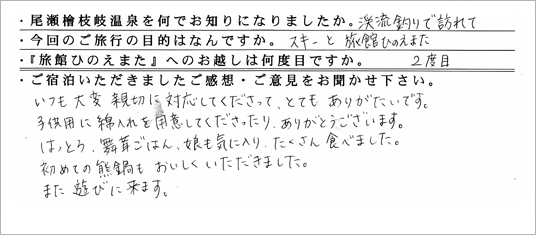 ・尾瀬檜枝岐温泉を何でお知りになりましたか。渓流釣りで訪れて
・今回のご旅行の目的はなんですか。 スキーと旅館ひのえまた
・『旅館ひのえまた』へのお越しは何度目ですか。 2度目
・ご宿泊いただきましたご感想・ご意見をお聞かせ下さい。
いつも大変親切に対応してくださって、とてもありがたいです。
子供用に綿入れを用意してくださったり、ありがとうございます。
はっとう、舞茸ごはん、娘も気に入り、たくさん食べました。
初めての熊鍋もおいしくいただきました。
また遊びに来ます。